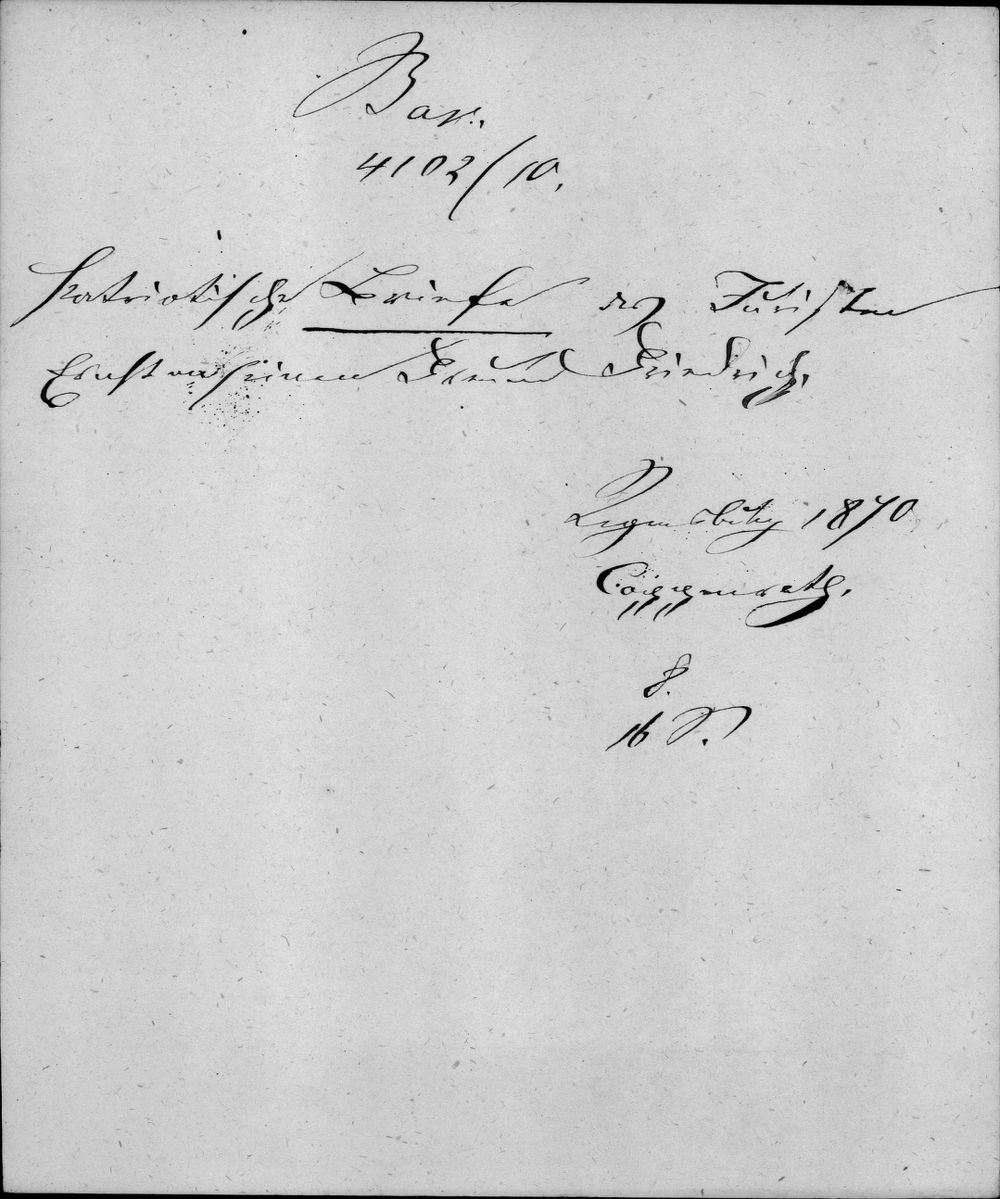 Bav.
4102/10.
Patriotische Briefe des Juristen
Ernst an seinen Freund Friedrich.
Regensburg 1870
Coppenrath.
8.
16 S.